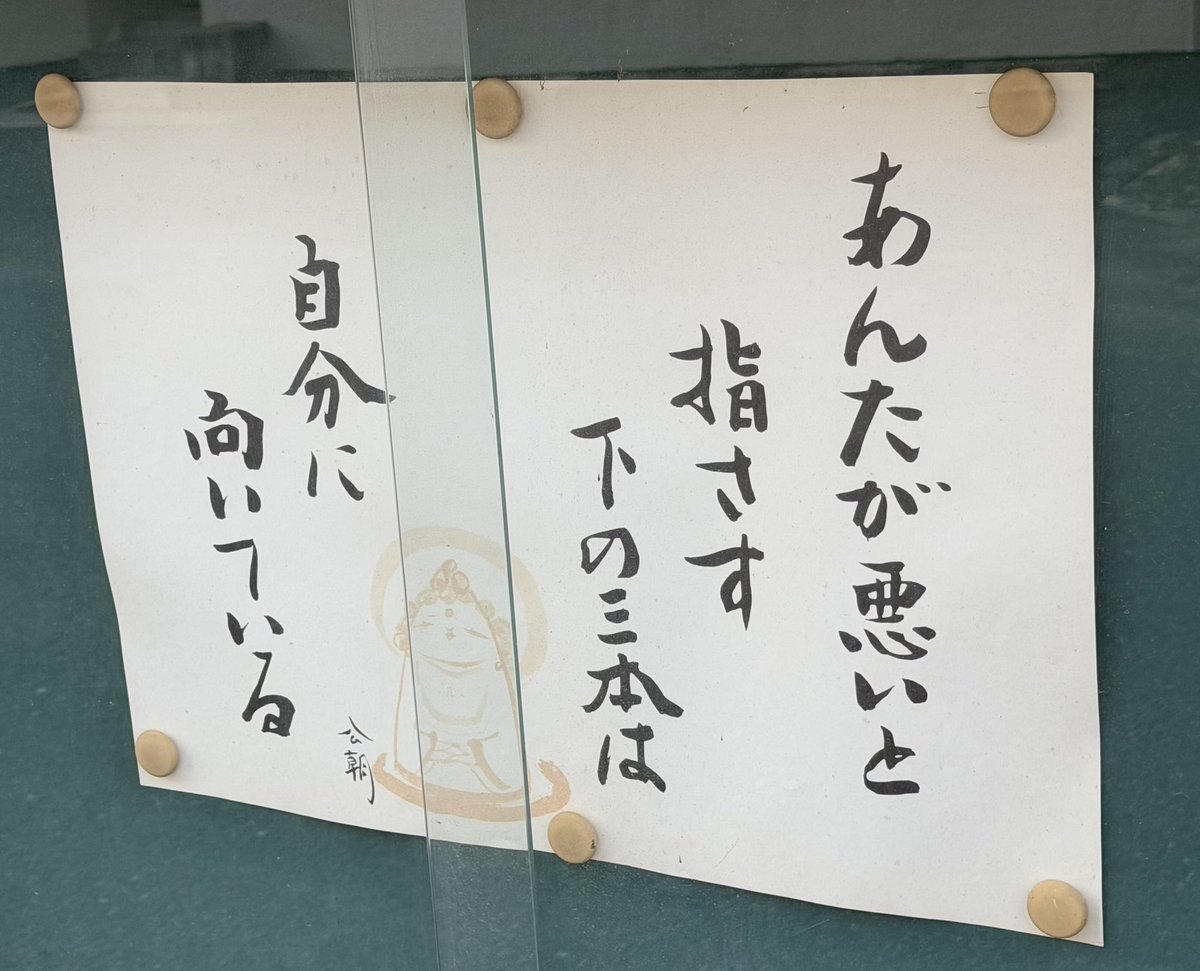 あんたが悪いと
指さす
下の三本は
自分に
向いている
公朝